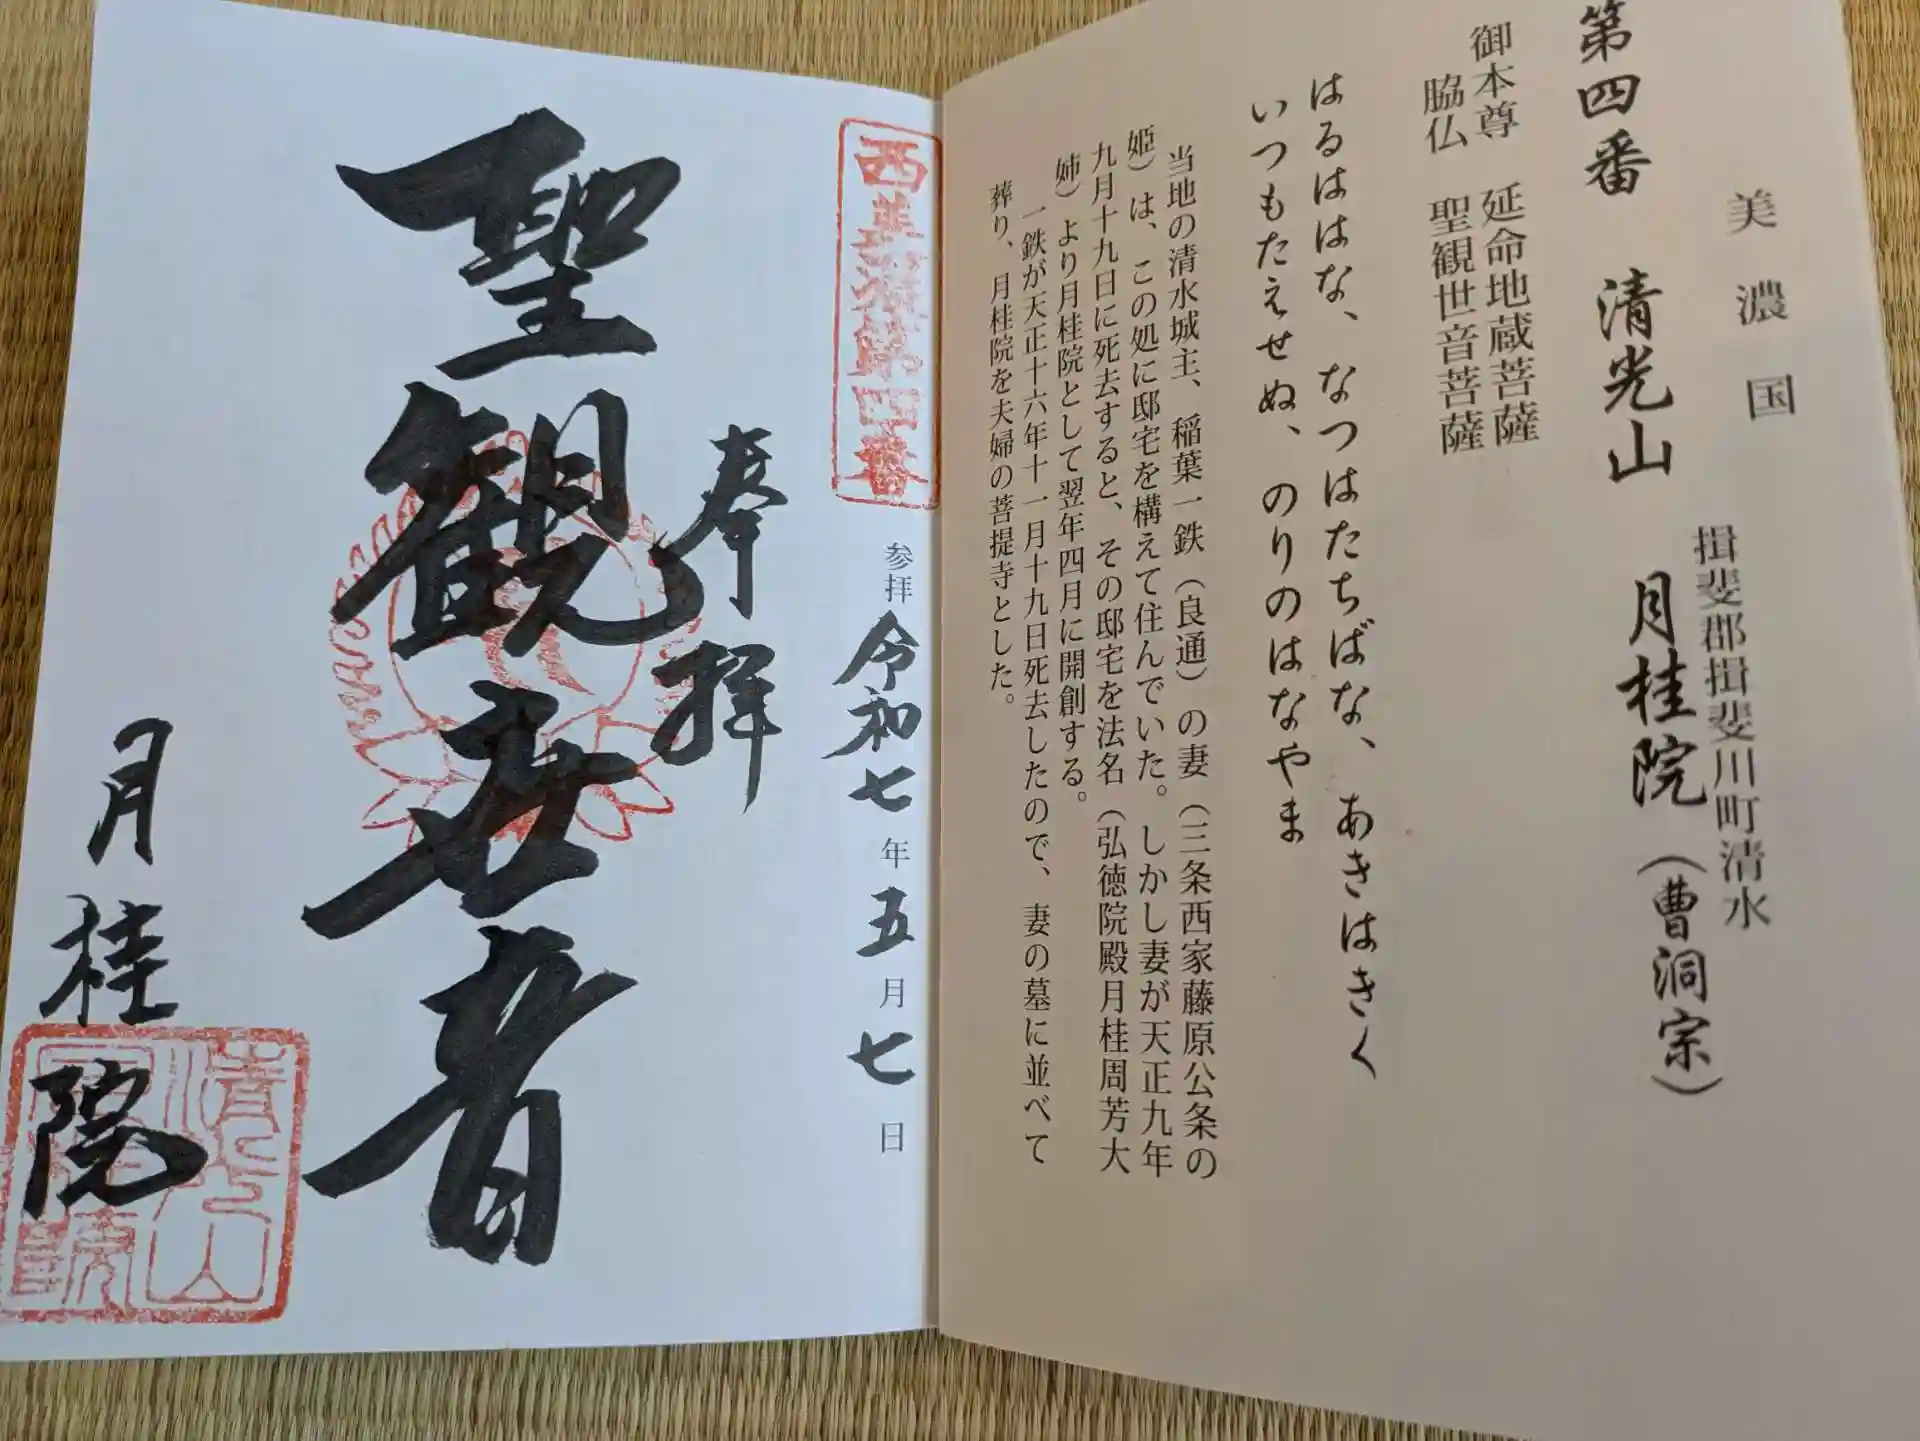 美濃国
揖斐郡揖斐川町清水
第四番 清光山 月桂院(曹洞宗)
御本尊 延命地蔵菩薩
脇仏 聖観世音菩薩
はるははな、なつはたちばな、あきはきく
いつもたえせぬ、のりのはなやま
当地の清水城主、稲葉一鉄(良通)の妻(三条西家藤原公条の
姫)は、この処に邸宅を構えて住んでいた。しかし妻が天正九年
九月十九日に死去すると、その邸宅を法名(弘徳院殿月桂周芳大
姉)より月桂院として翌年四月に開創する。
一鉄が天正十六年十一月十九日死去したので、妻の墓に並べて
葬り、月桂院を夫婦の菩提寺とした。
西美濃第四番
参拝 令和七年五月七日
奉拝
聖観世音
月桂院
清光山